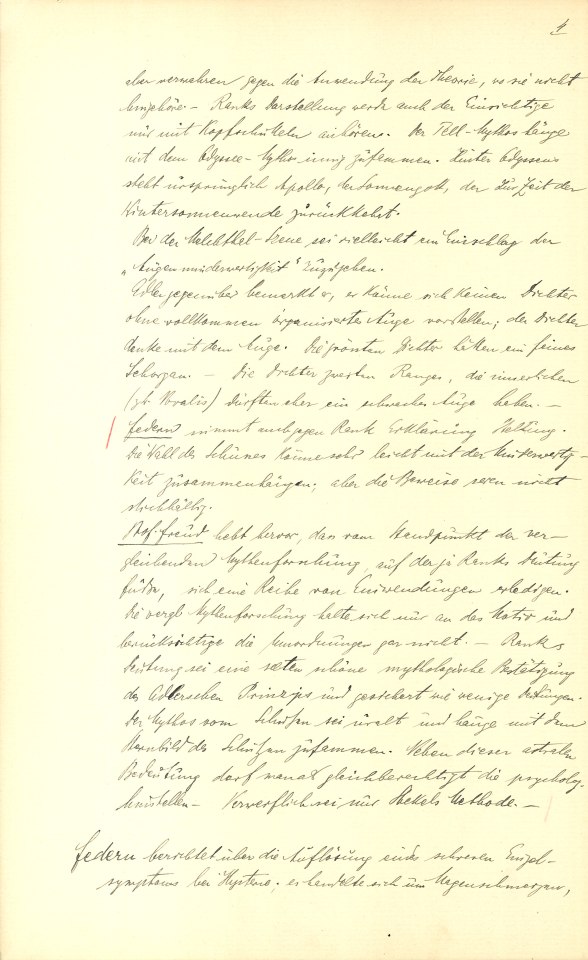 4
aber verwahren gegen die Anwendung der Theorie, wo sie nicht
hingehöre. – Ranks Darstellung werde auch der Einsichtige
nur mit Kopfschütteln anhören. Der Tell-Mythos hänge
mit dem Odyssee-Mythos innig zusammen. Hinter Odysseus
steht ursprünglich Apollo, der Sonnengott, der zur Zeit der
Wintersonnenwende zurückkehrt.
Bei der Melchthal-Szene sei vielleicht ein Einschlag der
„Augenminderwertigkeit" zuzugeben.
Adler gegenüber bemerkt er, er könne sich keinen Dichter
ohne vollkommen organisiertes Auge vorstellen; der Dichter
denke mit dem Auge. Die größten Dichter hätten ein feines
Sehorgan. – Die Dichter zweiten Ranges, die innerlichen
dürften eher ein schwaches Auge haben. –
Federn nimmt auch gegen Rank Erklärung Stellung.
Die Wahl des Schützen könne sehr leicht mit der Minderwertig-
keit zusammenhängen; aber die Beweise seien nicht
stichhältig.
Prof. Freud hebt hervor, dass vom Standpunkt der ver-
gleichenden Mythenforschung, auf der ja Ranks Deutung
fuße, sich eine Reihe von Einwendungen erledigen.
Die vergl. Mythenforschung halte sich nur an das Motiv und
berücksichtige die Umordnungen gar nicht. – Ranks
Deutung sei eine selten schöne mythologische Bestätigung
des Adlerschen Prinzips und gesichert wie wenige Deutungen.
Der Mythos vom Schützen sei uralt und hänge mit dem
Sternbild des Schützen zusammen. Neben dieser astralen
Bedeutung darf man als gleichberechtigt die psycholog.
hinstellen. – Verwerflich sei nur Stekels Methode. –
Federn berichtet über die Auflösung eines schweren Einzel-
symptoms bei Hysterie; es handelte sich um Magenschmerzen,